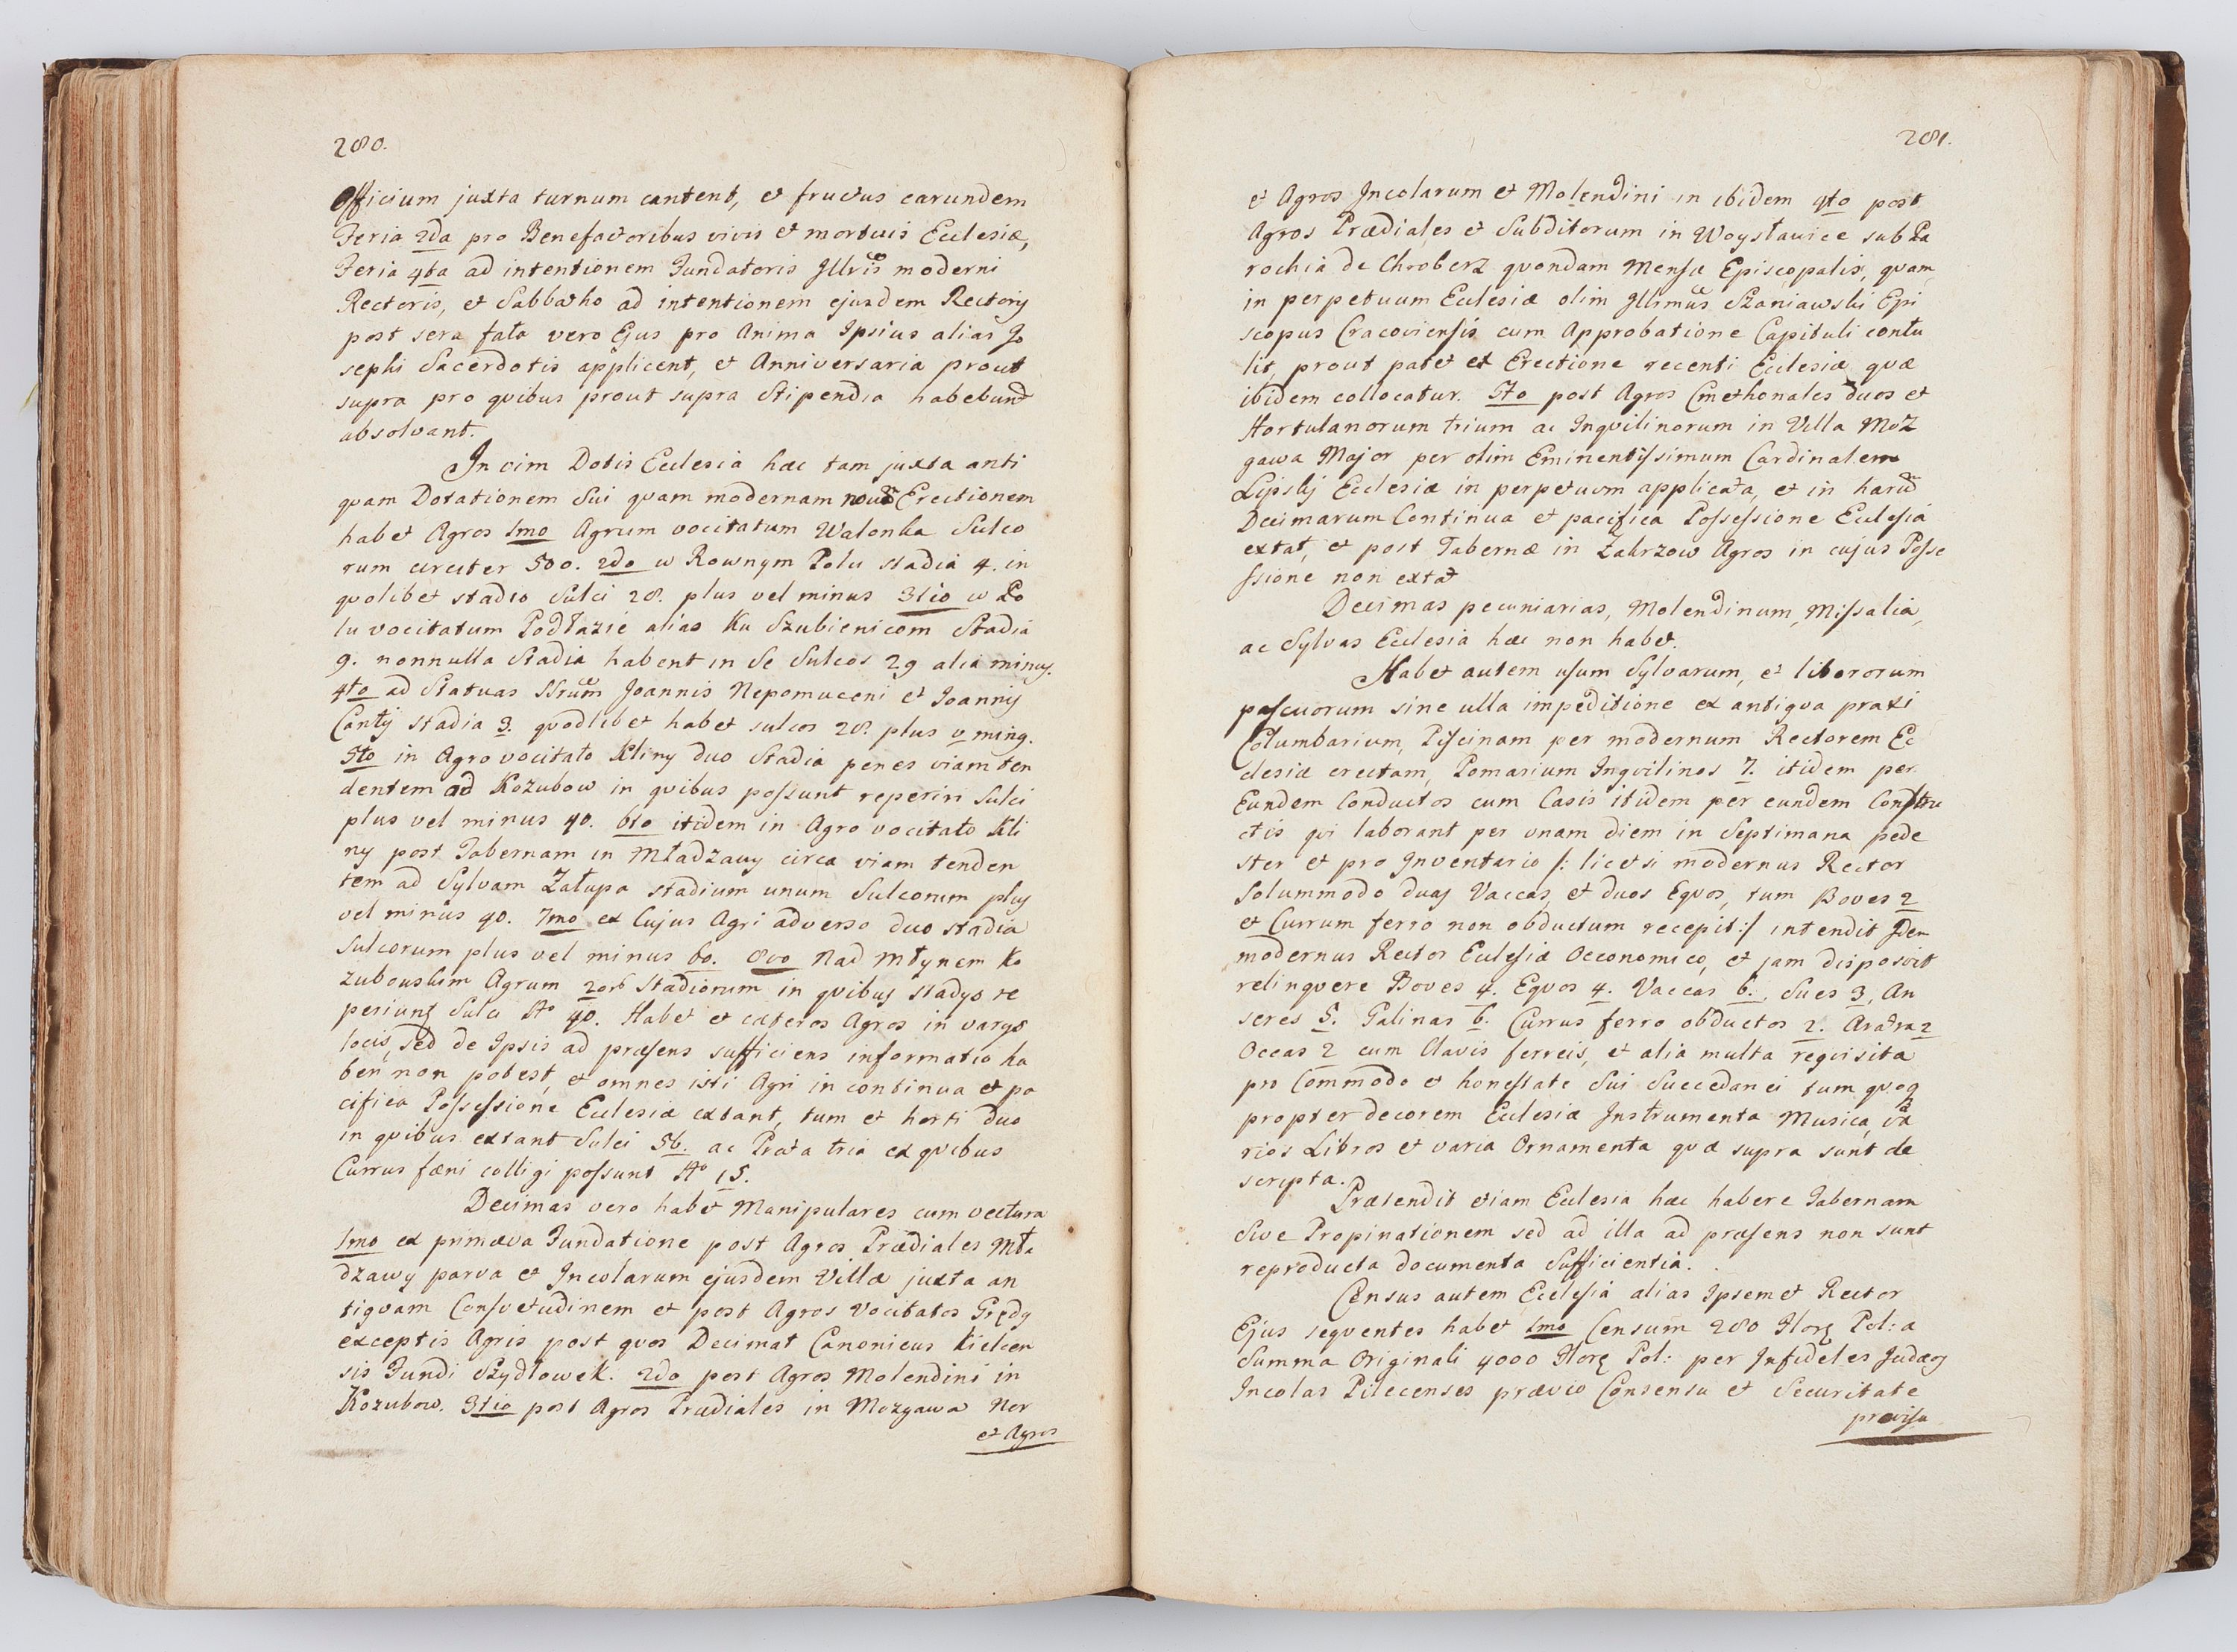 280.
Officium juxta turnum cantent, et fructus earundem
Feria 2da pro Benefactoribus vivis et mortuis Ecclesiæ,
Feria 4ta ad intentionem Fundatoris Illris moderni
Rectoris, et Sabbatho ad intentionem ejusdem Rectoris
post sera fata vero Ejus pro Anima Ipsius alias Jo
sephi Sacerdotis applicent, et Anniversaria prout
supra pro quibus prout supra Stipendia habebunt
absolvant.
In vim Dotis Ecclesia hæc tam juxta anti
quam Dotationem Sui quam modernam Erectionem
habet Agros 1mo Agrum vocitatum Walonka Sulco
rum circiter 500. 2do w Rownym Polu stadia 4. in
quolibet stadio Sulci 28. plus vel minus 3tio w Po
lu vocitatum Podłazie alias Ku Szubienicom Stadia
9. nonnulla Stadia habent in Se Sulcos 29 alia minus.
4to ad Statuas SSrum Joannis Nepomuceni et Joannis
Cantij stadia 3. quodlibet habet sulcos 28. plus v minq.
5to in Agro vocitato Kliny duo Stadia penes viam ten
dentem ad Kozubow in quibus possunt reperiri Sulci
plus vel minus 40. 6to itidem in Agro vocitato Kli
ny post Tabernam in Mładzawy circa viam tenden
tem ad Sylvam Załupa stadium unum Sulcorum plus
vel minus 40. 7mo ex Cujus Agri adverso duo stadia
Sulcorum plus vel minus 60. 8vo Nad Młynem Ko
zubowskim Agrum 2orũ Stadiorum in quibus stadys re
periunt Sulci No 40. Habet et cæteros Agros in varys
locis, sed de Ipsis ad præsens sufficiens informatio ha
beri non potest, et omnes isti Agri in continua et pa
cifica Possessione Ecclesiæ extant, tum et horti duo
in quibus extant Sulci 56. ac Prata tria ex quibus
Currus fæni colligi possunt No 15.
Decimas vero habet Manipulares cum vectura
1mo ex primæva Fundatione post Agros Prædiales Mła
dzawy parva et Incolarum ejusdem Villæ juxta an
tiquam Consvetudinem et post Agros vocitatos Grędy
exceptis Agris post quos Decimat Canonicus Kielcen
sis Fundi Szydłowek. 2do post Agros Molendini in
Kozubow. 3tio post Agros Prædiales in Mozgawa
et Agros
281.
et Agros Incolarum et Molendini in ibidem 4to post
Agros Prædiales et Subditorum in Woysławice sub Pa
rochia de Chroberz quondam Mensæ Episcopalis, quam
in perpetuum Ecclesiæ olim Illrmus Szaniawski Epi
scopus Cracoviensis cum Approbatione Capituli contu
lit, prout patet ex Erectione recenti Ecclesiæ quæ
ibidem collocatur. 5to post Agros Cmethonales duos et
Hortulanorum trium ac Inqvilinorum in Villa Moz
gawa Major per olim Eminentissimum Cardinalem
Lipskj Ecclesiæ in perpetuum applicata, et in harũ
Decimarum Continua et pacifica Possessione Ecclesia
extat, et post Tabernæ in Zakrzow Agros in cujus Posse
ssione non extat
Decimas pecuniarias, Molendinum, Missalia,
ac Sylvas Ecclesia hæc non habet.
Habet autem usum Sylvarum, et liberorum
pascuorum sine ulla impeditione ex antiqva praxi
Columbarium, Piscinam per modernum Rectorem Ec
clesiæ erectam, Pomarium Inqvilinos 7. itidem per
Eundem Conductos cum Casis itidem per eundem Constru
ctis qvi laborant per unam diem in Septimana pede
ster et pro Inventario /: licet si modernus Rector
Solummodo duas Vaccas, et duos Eqvos, tum Boves 2
et Currum ferro non obductum recepit :/ intendit Idem
modernus Rector Ecclesiæ Oeconomico, et jam disposuit
relinqvere Boves 4. Eqvos 4. Vaccas 6. Sues 3, An
seres 5. Galinas 6. Currus ferro obductos 2. Aratra 2
Occas 2 cum Clavis ferreis, et alia multa reqvisita
pro Commodo et honestate Sui Succedanei tum quoq
propter decorem Ecclesiæ Instrumenta Musica, va
rios Libros et varia Ornamenta quæ supra sunt de
scripta.
Prætendit etiam Ecclesia hæc habere Tabernam
Sive Propinationem sed ad illa ad præsens non sunt
reproducta documenta Sufficientia.
Census autem Ecclesia alias Ipsemet Rector
Ejus seqventes habet 1mo Censum 280 Flor Pol: a
Summa Originali 4000 Flor Pol: per Infideles Judæos
Incolas Pilecenses prævio Consensu et Securitate
prævisa